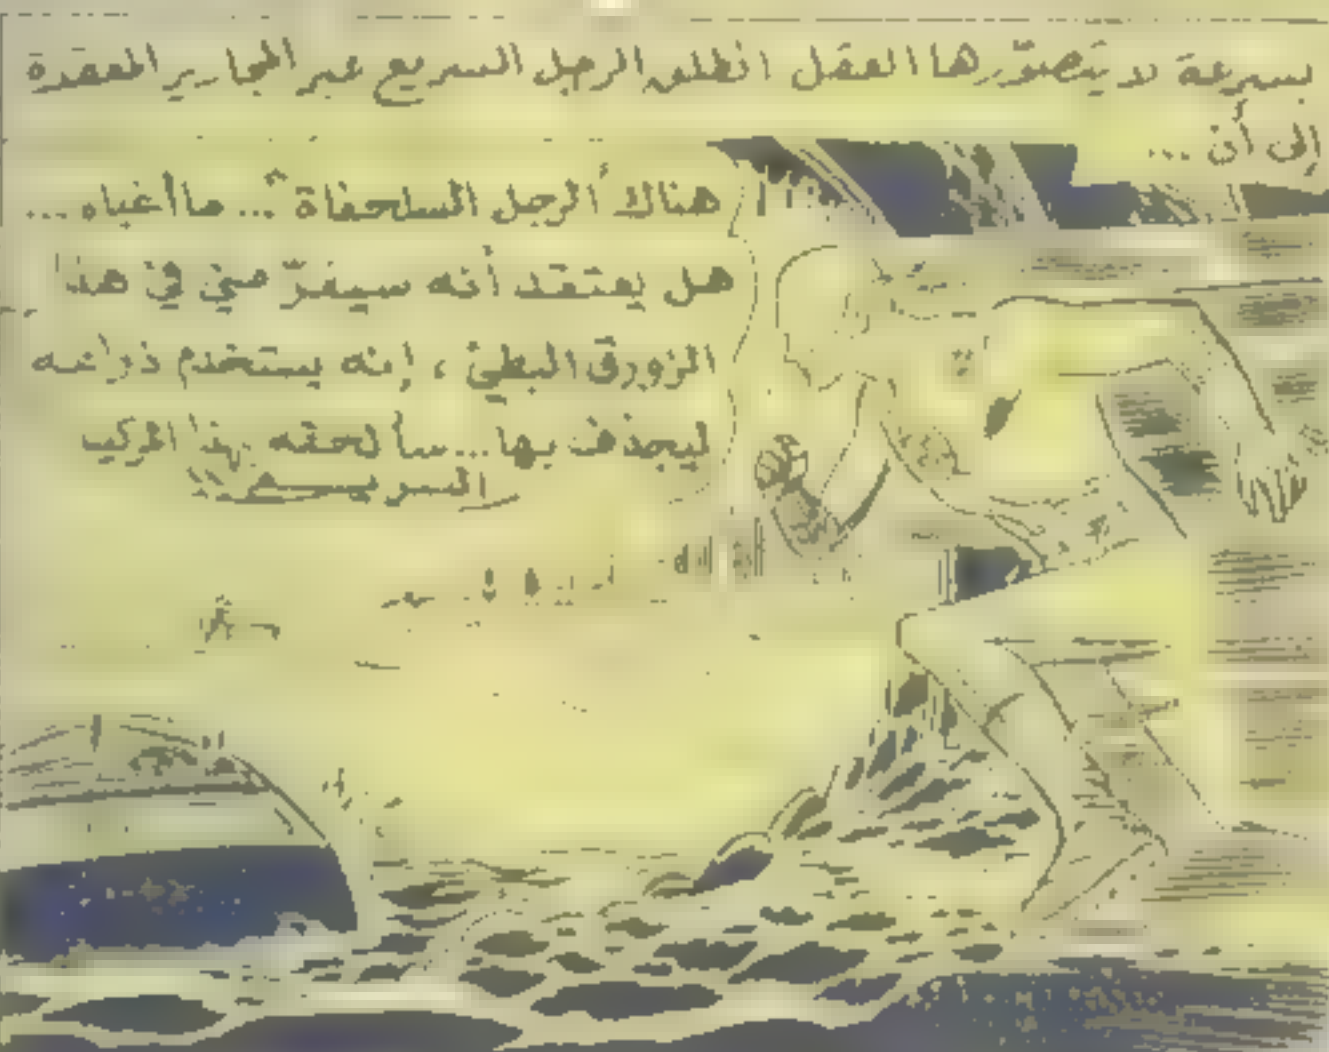 بسرعة لا يتصوّرها العقل انطلق الرجل السريع عبر المجارير المعقدة
إلى أن ...
هناك "الرجل السلحفاة" ... ما أغباه ...
هل يعتقد أنه سيفرّ مني في هذا
الزورق البطيئ ، إنه يستخدم ذراعيه
ليجذف بها ... سألحقه بهذا المركب
السريع